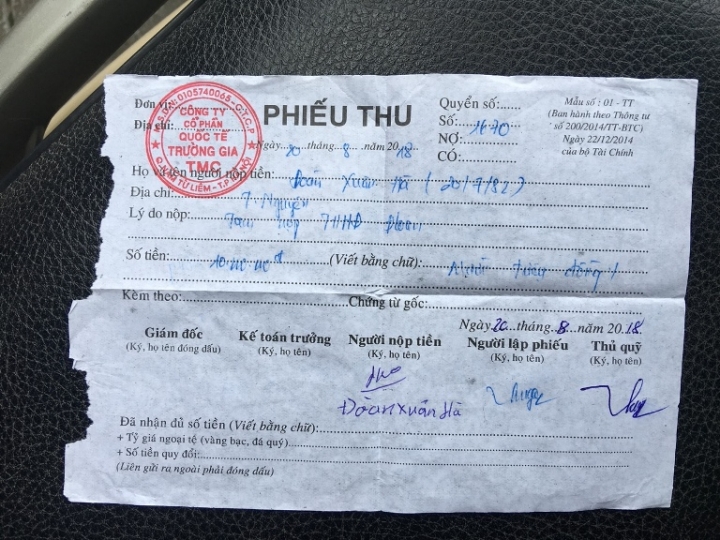 M.S.D.N: 0105740065 - C.T.C.P
CÔNG TY
CỔ PHẦN
QUỐC TẾ
TRƯỜNG GIA
TMC
Q. NAM TỪ LIÊM - T.P HÀ NỘI
Đơn vị:
Địa chỉ:
PHIẾU THU
Ngày 20 tháng 8 năm 2018
Quyển số:
Số: 1670
NỢ:
CÓ:
Mẫu số : 01 - TT
(Ban hành theo Thông tư
số 200/2014/TT-BTC)
Ngày 22/12/2014
của bộ Tài Chính
Họ và tên người nộp tiền: Đoàn Xuân Hà (20/7/82)
Địa chỉ: T. Nguyên
Lý do nộp:
Số tiền: (Viết bằng chữ): đồng
Kèm theo: Chứng từ gốc:
Ngày 20 tháng 8 năm 2018
Giám đốc Kế toán trưởng Người nộp tiền Người lập phiếu Thủ quỹ
(Ký, họ tên đóng dấu) (Ký, họ tên) (Ký, họ tên) (Ký, họ tên) (Ký, họ tên)
Đoàn Xuân Hà
Đã nhận đủ số tiền (Viết bằng chữ):
+ Tỷ giá ngoại tệ (vàng bạc, đá quý)
+ Số tiền quy đổi:
(Liên gửi ra ngoài phải đóng dấu)